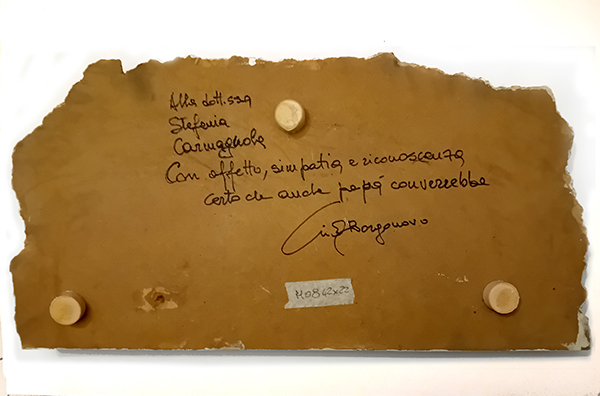 Alla dott.ssa
Stefania
Carmagnola
Con affetto, simpatia e riconoscenza
certo che anche papà converrebbe
Borgonovo